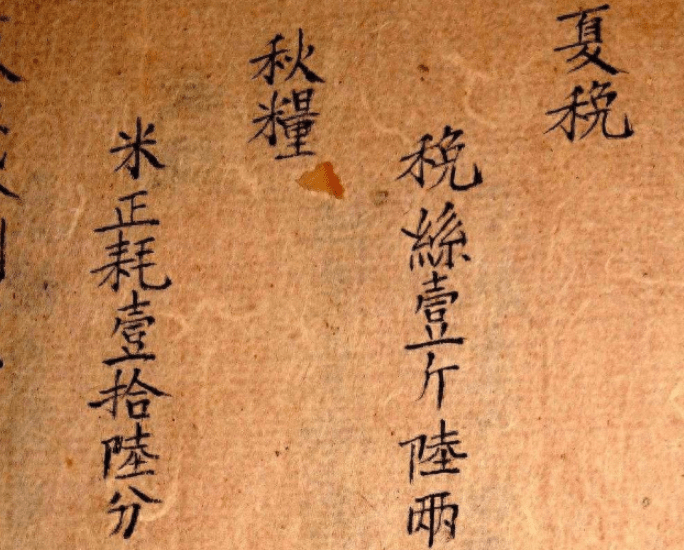 夏稅
稅絲壹斤陸兩
秋糧
米正耗壹拾陸分